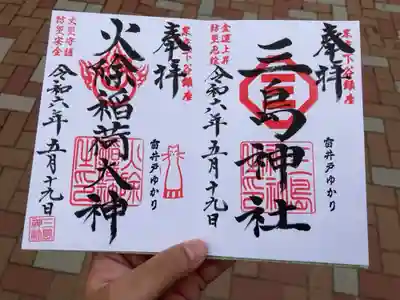 奉拝
東京下谷鎮座
三島神社
雷井戸ゆかり
金運上昇
防災厄除
令和六年五月十九日
奉拝
東京下谷鎮座
火除稲荷大神
雷井戸ゆかり
火災守護
防災安全
令和六年五月十九日